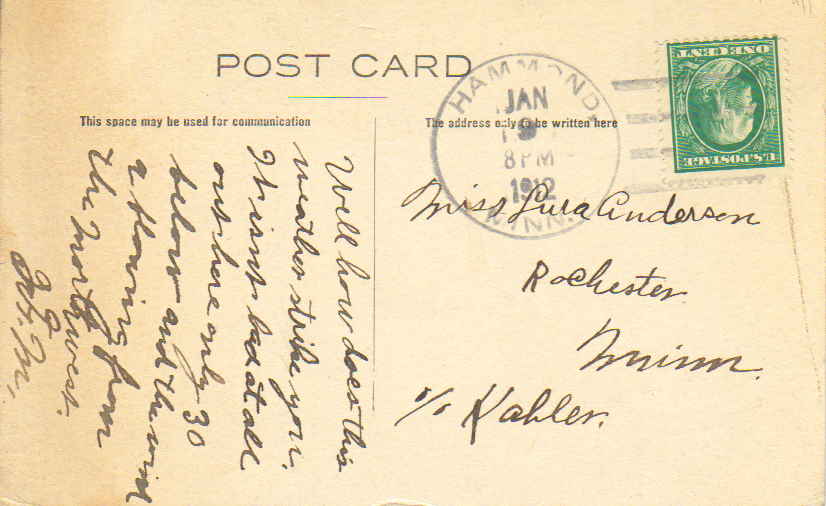 POST CARD
This space may be used for communication
The address only to be written here
HAMMOND,
JAN
8 PM
1912
MINN.
ONE CENT
U.S. POSTAGE
Well how does this
weather strike you.
It isnt bad at all
out here only 30
below and the wind
a blowing from
the Northwest.
Miss Lura Anderson
Rochester
Minn.
c/o Kahler.